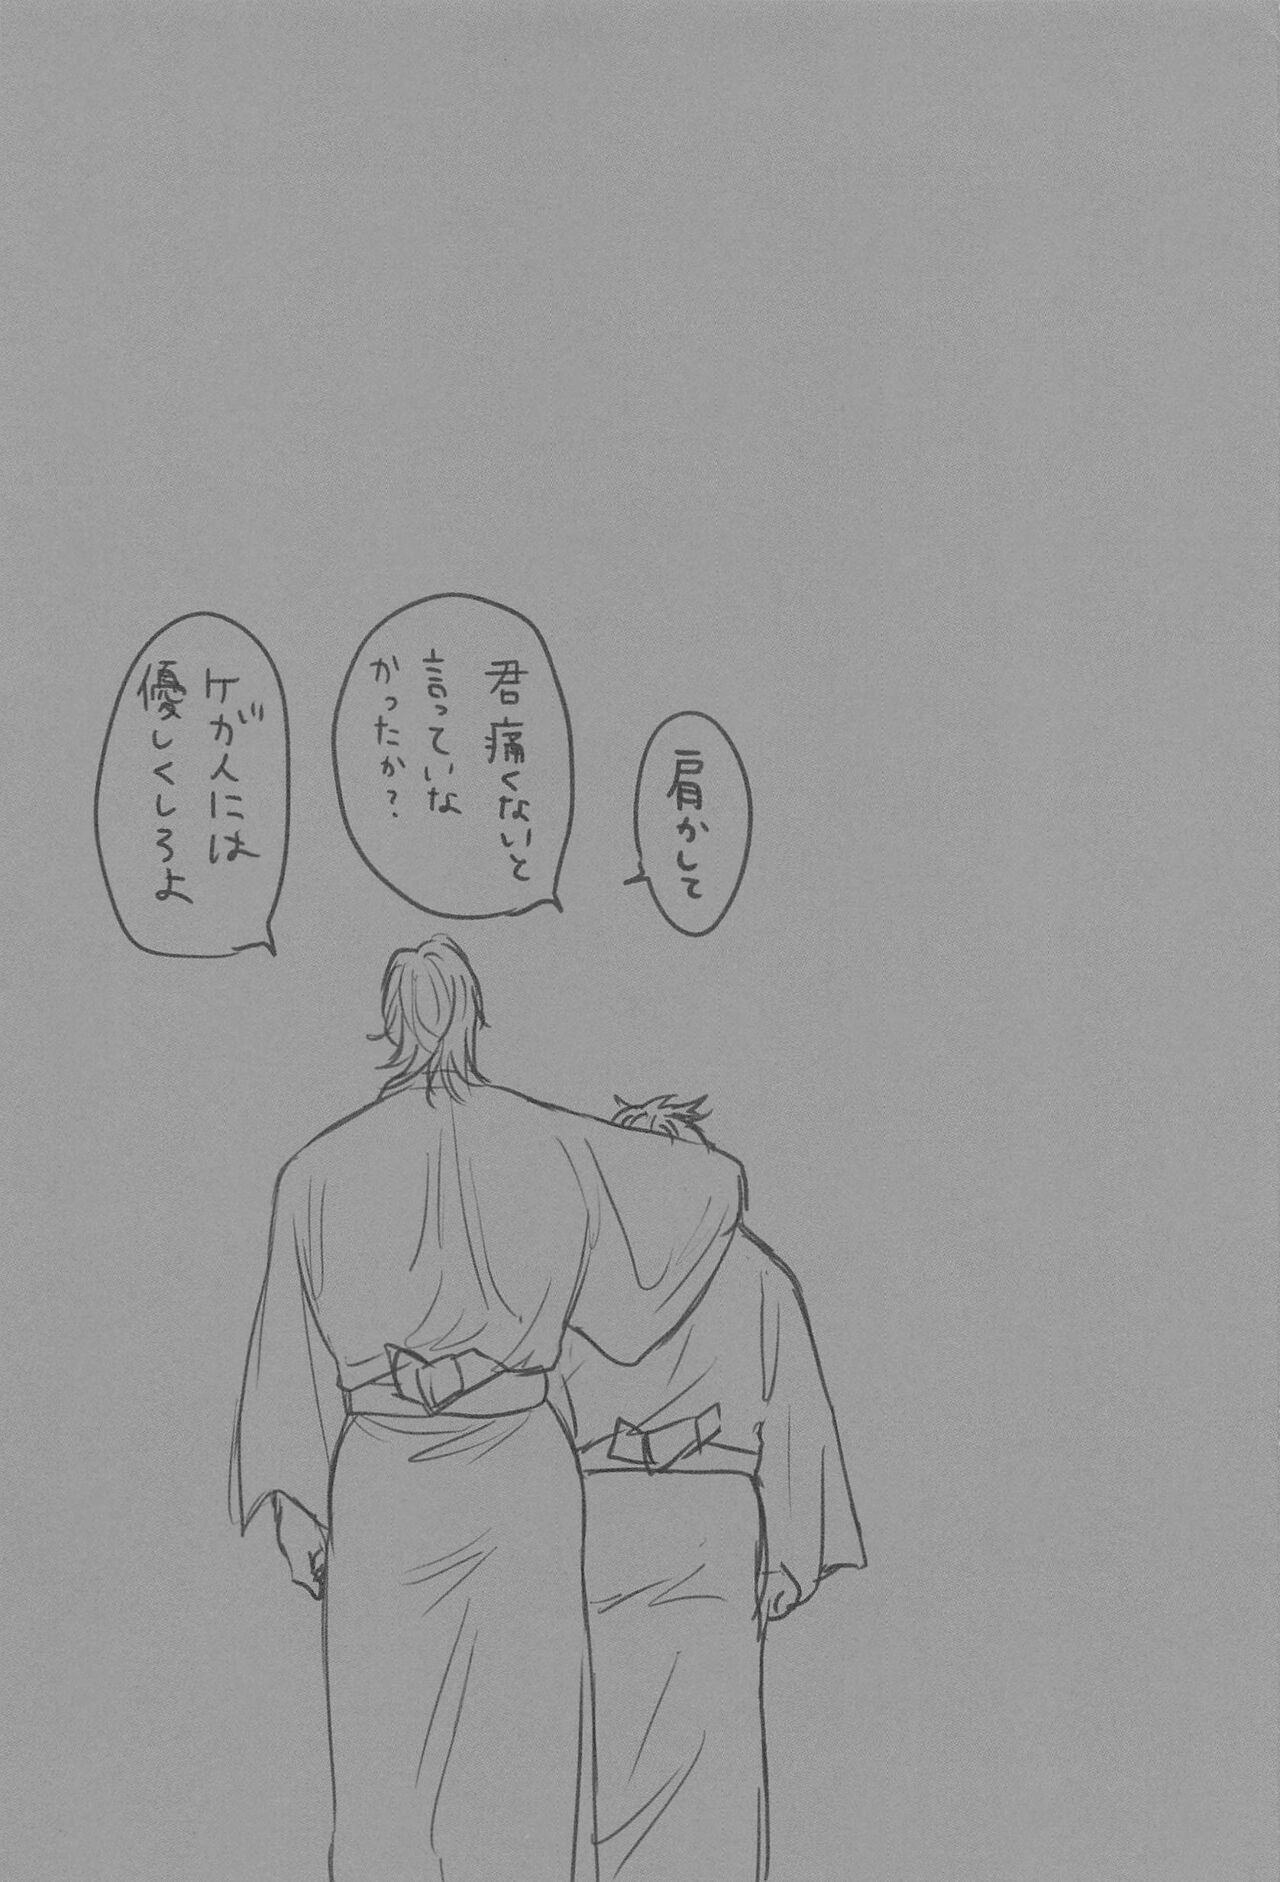 肩かして
君痛くないと
言っていな
かったか?
ケが人には
優しくしろよ